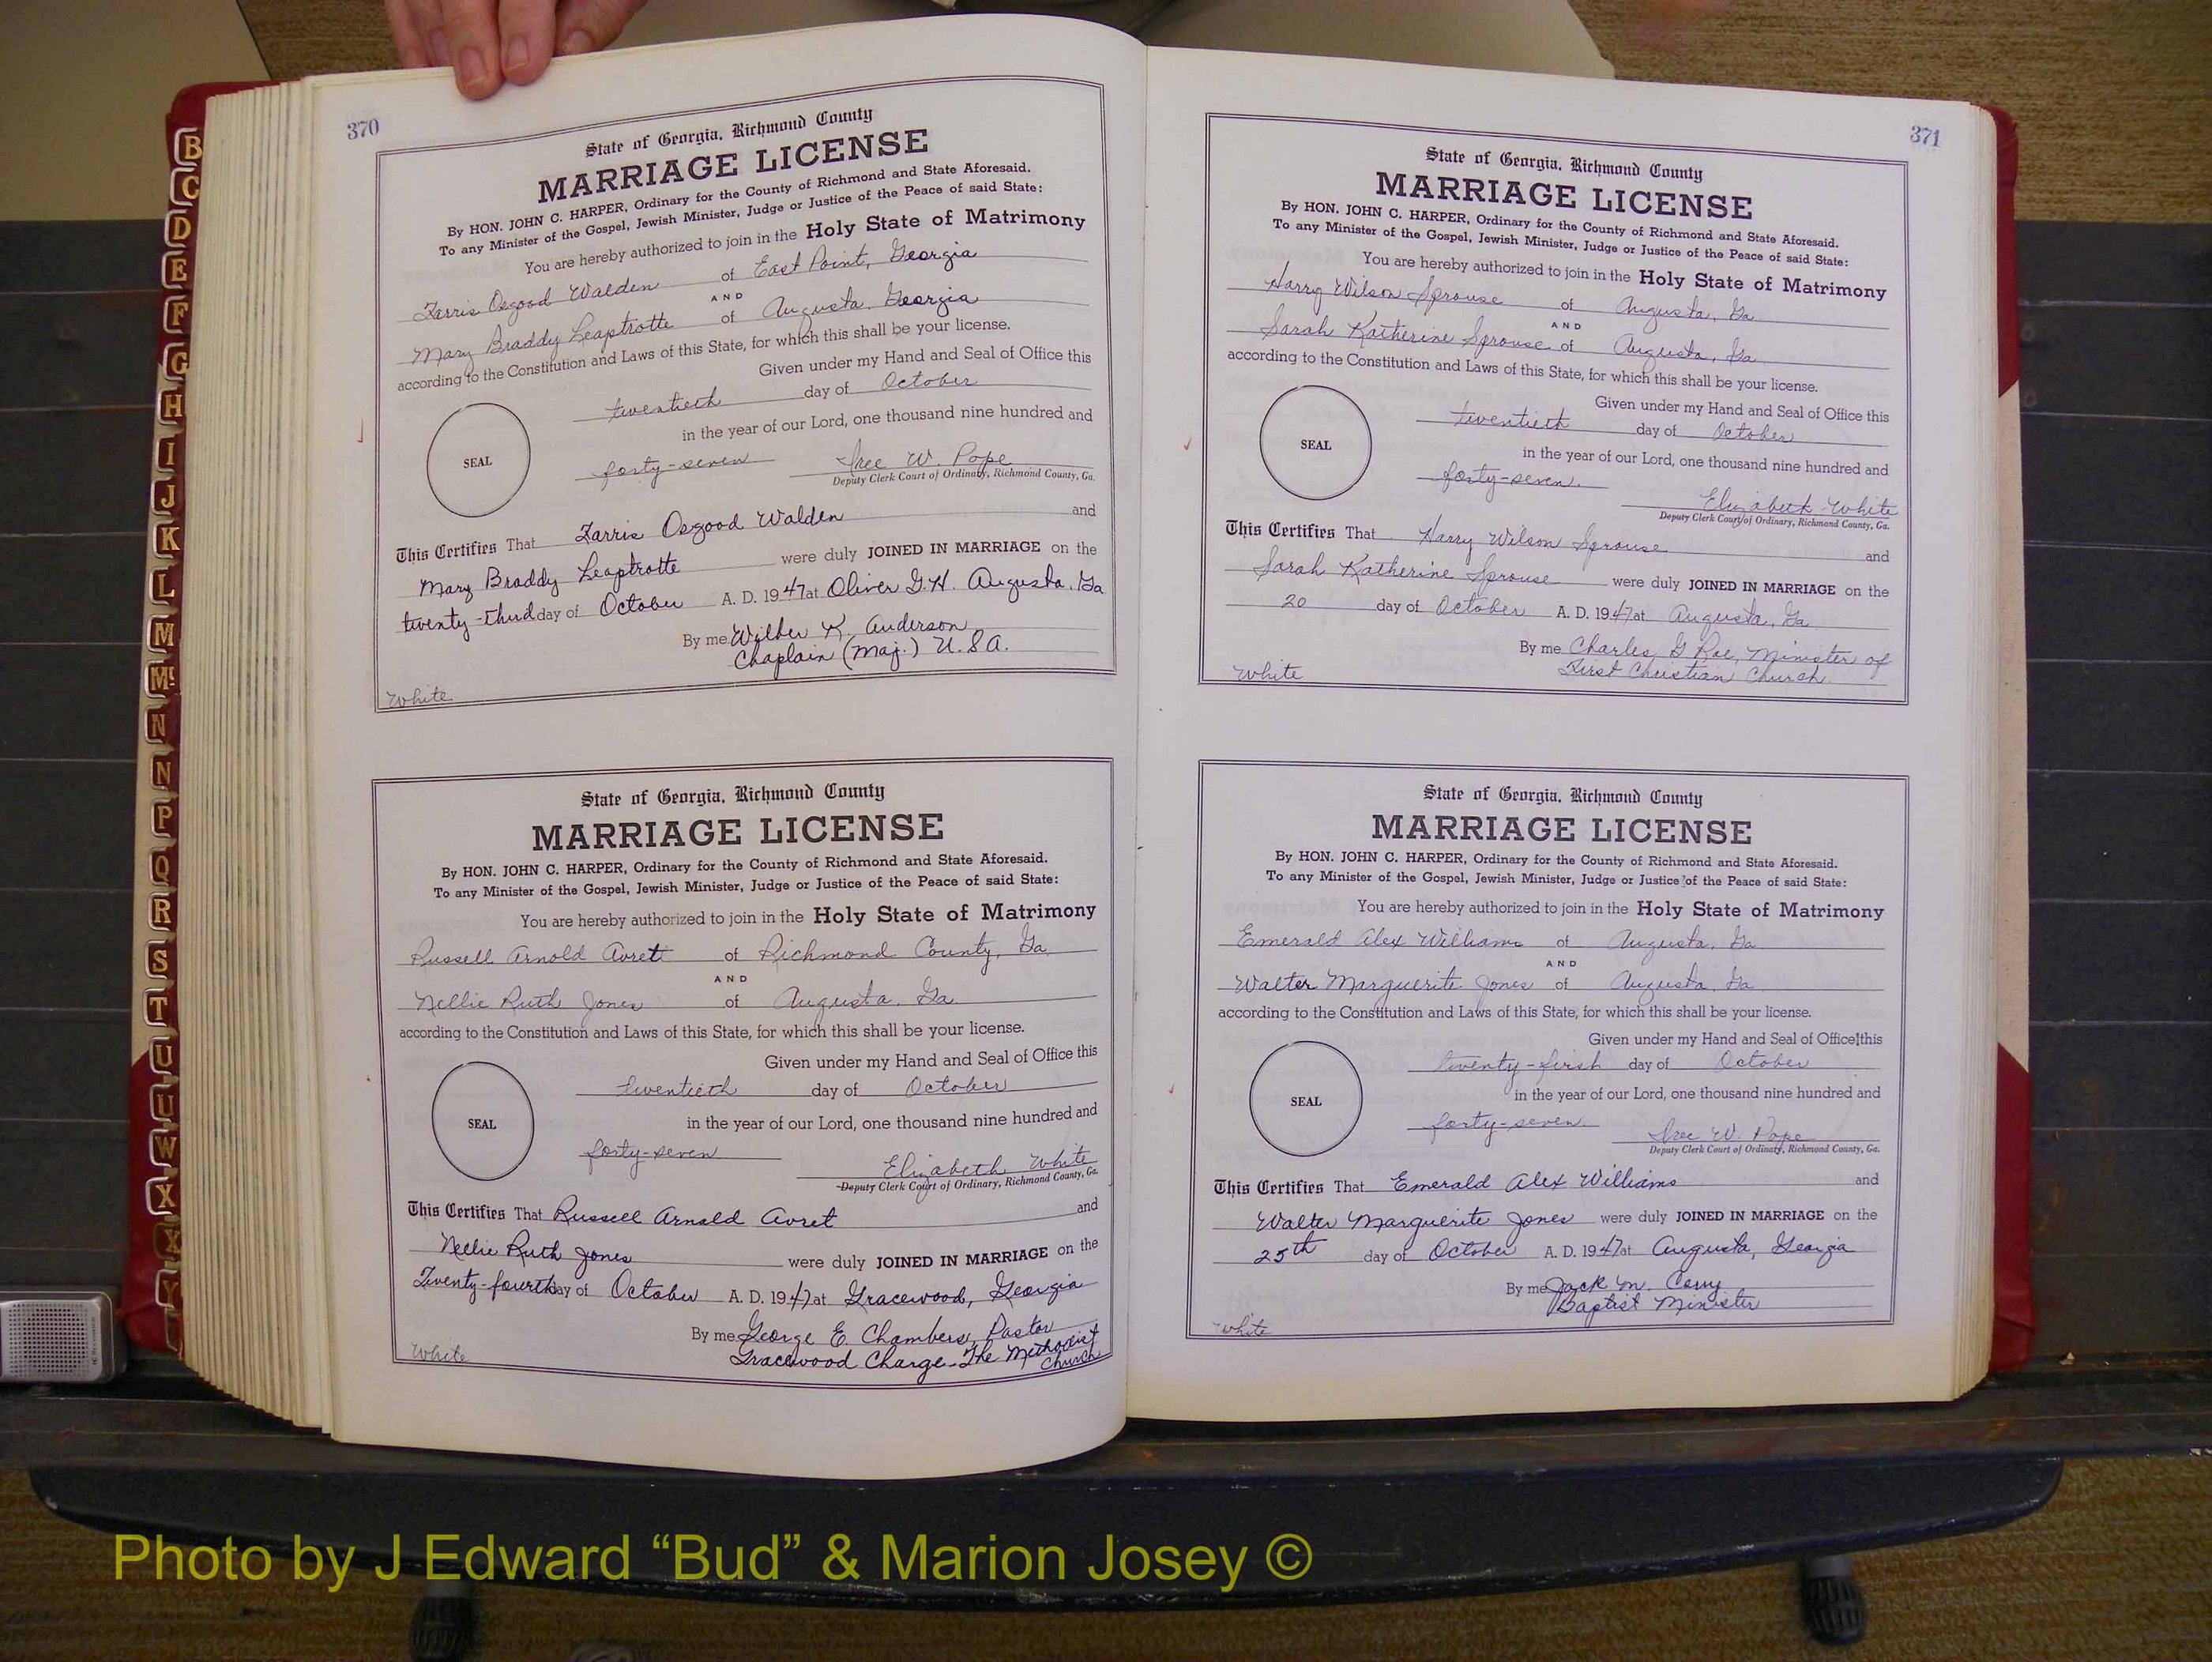 370
State of Georgia, Richmond County
MARRIAGE LICENSE
By HON. JOHN C. HARPER, Ordinary for the County of Richmond and State Aforesaid.
To any Minister of the Gospel, Jewish Minister, Judge or Justice of the Peace of said State:
You are hereby authorized to join in the Holy State of Matrimony
Farris Osgood Walden of East Point, Georgia
AND
Mary Braddy Leaptrotte of Augusta, Georgia
according to the Constitution and Laws of this State, for which this shall be your license.
Given under my Hand and Seal of Office this
twentieth day of October
in the year of our Lord, one thousand nine hundred and
SEAL
forty-seven Iree W. Pope
Deputy Clerk Court of Ordinary, Richmond County, Ga.
This Certifies That Farris Osgood Walden and
Mary Braddy Leaptrotte were duly JOINED IN MARRIAGE on the
twenty-third day of October A. D. 1947 at Oliver G.H. Augusta, Ga
By me Wilber K. Anderson
Chaplain (Maj.) U.S.A.
White
State of Georgia, Richmond County
MARRIAGE LICENSE
By HON. JOHN C. HARPER, Ordinary for the County of Richmond and State Aforesaid.
To any Minister of the Gospel, Jewish Minister, Judge or Justice of the Peace of said State:
You are hereby authorized to join in the Holy State of Matrimony
Russell Arnold Avrett of Richmond County, Ga.
AND
Nellie Ruth Jones of Augusta, Ga
according to the Constitution and Laws of this State, for which this shall be your license.
Given under my Hand and Seal of Office this
twentieth day of October
SEAL
in the year of our Lord, one thousand nine hundred and
forty-seven
Elizabeth White
Deputy Clerk Court of Ordinary, Richmond County, Ga.
This Certifies That Russell Arnold Avret and
Nellie Ruth Jones were duly JOINED IN MARRIAGE on the
Twenty-fourth day of October A. D. 1947 at Gracewood, Georgia
By me George E. Chambers, Pastor
Gracewood Charge-The Methodist
Church
White
371
State of Georgia, Richmond County
MARRIAGE LICENSE
By HON. JOHN C. HARPER, Ordinary for the County of Richmond and State Aforesaid.
To any Minister of the Gospel, Jewish Minister, Judge or Justice of the Peace of said State:
You are hereby authorized to join in the Holy State of Matrimony
Harry Wilson Sprouse of Augusta, Ga
AND
Sarah Katherine Sprouse of Augusta, Ga
according to the Constitution and Laws of this State, for which this shall be your license.
Given under my Hand and Seal of Office this
twentieth day of October
SEAL
in the year of our Lord, one thousand nine hundred and
forty-seven.
Elizabeth White
Deputy Clerk Court of Ordinary, Richmond County, Ga.
This Certifies That Harry Wilson Sprouse and
Sarah Katherine Sprouse were duly JOINED IN MARRIAGE on the
20 day of October A. D. 1947 at Augusta, Ga
By me Charles G Roe, Minister of
First Christian Church
White
State of Georgia, Richmond County
MARRIAGE LICENSE
By HON. JOHN C. HARPER, Ordinary for the County of Richmond and State Aforesaid.
To any Minister of the Gospel, Jewish Minister, Judge or Justice of the Peace of said State:
You are hereby authorized to join in the Holy State of Matrimony
Emerald Alex Williams of Augusta, Ga
AND
Walter Marguerite Jones of Augusta, Ga
according to the Constitution and Laws of this State, for which this shall be your license.
Given under my Hand and Seal of Office this
twenty-first day of October
in the year of our Lord, one thousand nine hundred and
SEAL
forty-seven. Iree W. Pope
Deputy Clerk Court of Ordinary, Richmond County, Ga.
This Certifies That Emerald Alex Williams and
Walter Marguerite Jones were duly JOINED IN MARRIAGE on the
25th day of October A. D. 1947 at Augusta, Georgia
By me Jack M.
Baptist Minister
White
B
C
D
E
F
G
H
I
J
K
L
M
Mc
N
N
P
Q
R
S
T
U
U
W
X
X
Y
Photo by J Edward “Bud” & Marion Josey ©